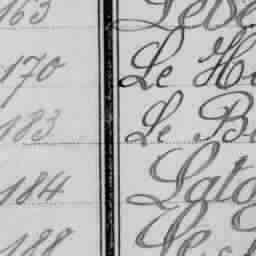 163 Lebe
170 Le Hu
183 Le Be
184 Lato
188 Le